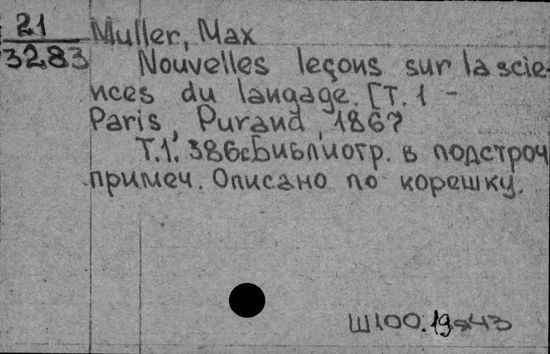 21
3283
Muller, Max
Nouvelles leçons sur la scie-
nces du langage. [Т. 1 -
Paris, Purand, 1867
Т.1. 386с Библиогр. в подстроч
примеч. Описано по корешку.
Ш100.19